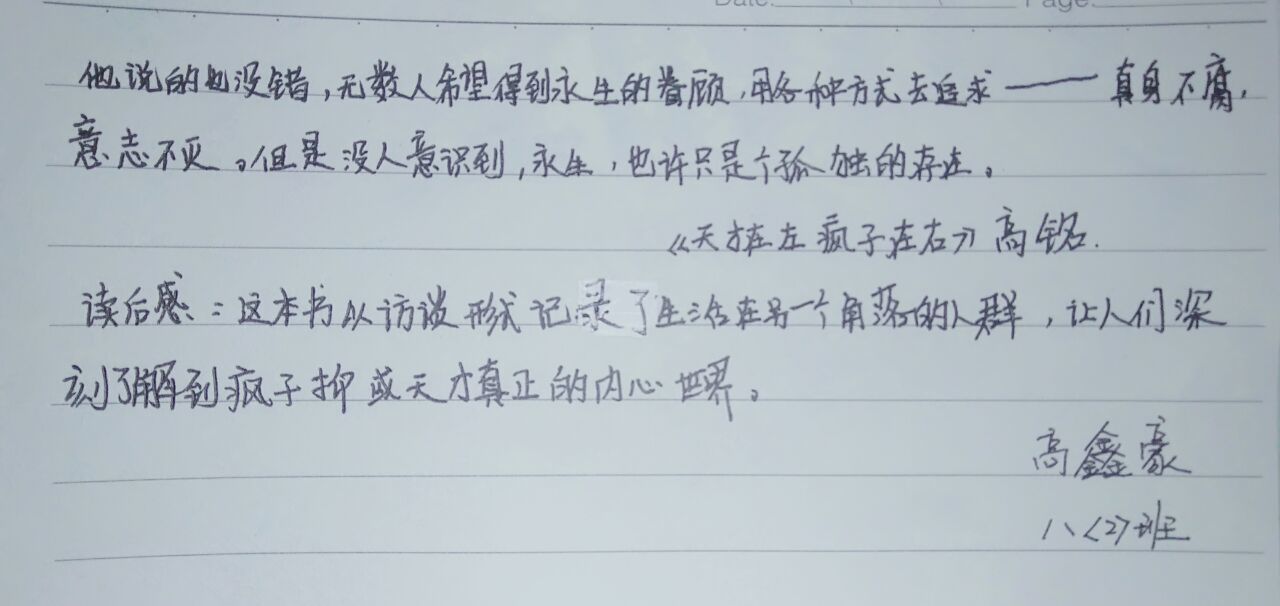 Date: Page:
他说的也没错，无数人希望得到永生的眷顾，用各种方式去追求——真身不腐，
意志不灭。但是没人意识到，永生，也许只是个孤独的存在。
《天才在左 疯子在右》高铭.
读后感：这本书以访谈形式记录了生活在另一个角落的人群，让人们深
刻了解到疯子抑或天才真正的内心世界。
高鑫豪
八〈2〉班